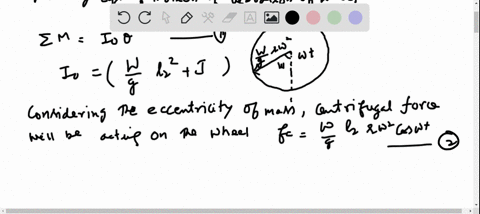 ΣM = I₀ θ̈ ——— ①
I₀ = ( W/g l₂² + J )
W/g r ω²
ω ωt
Considering the eccentricity of mass, centrifugal force
will be acting on the wheel fc = W/g l₂ r ω² cos ωt ——— ②